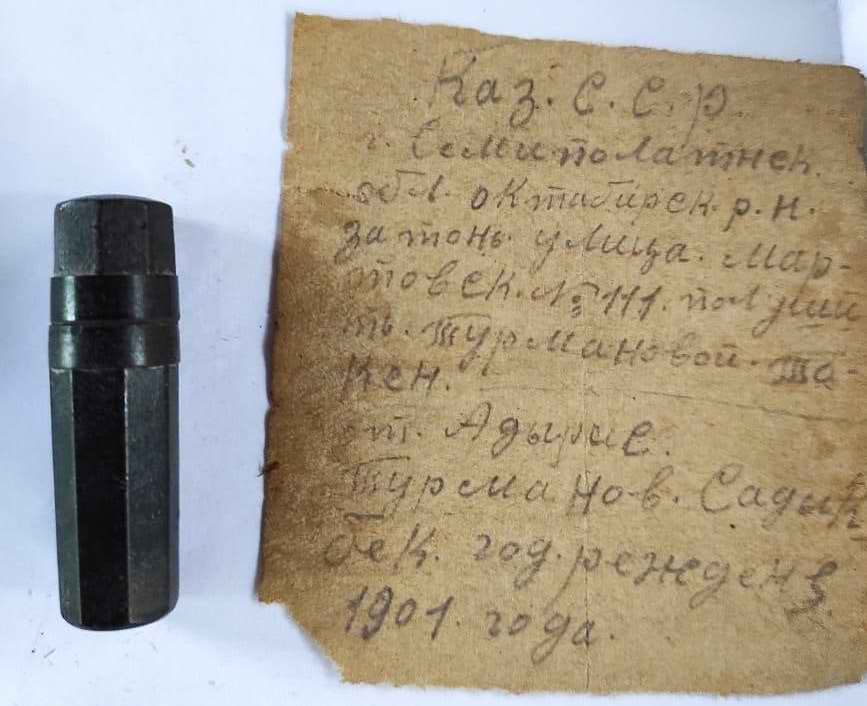 Каз. С. С. Р
г. Семиполатнск.
обл. октабирск. р. н.
затонь. улица. Мар-
товск. № 111. получи
ть. Турмановой. Та-
кен.
от. Адырис.
Турманов. Садык
бек. год. режденз.
1901. года.